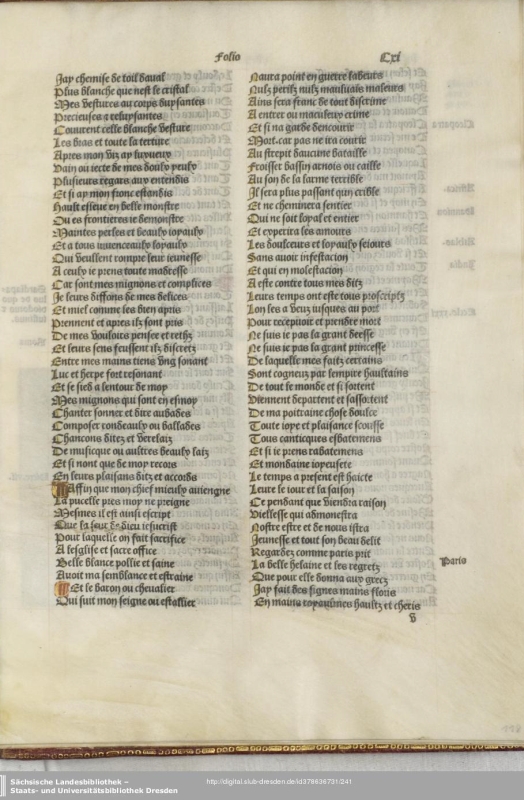 Folio
Cxi
Jay chemise de toil daual
Plus blanche que nest le cristal
Mes vestures au corps duysantes
Precieuses & reluysantes
Couurent celle blanche vesture
Les bras et toute la
Apres mon viz ay
Vain ou iecte de mes doulx yeulx
Plusieurs regars aux entendis
Et si ay mon front
Hault esleue en belle monstre
Ou es frontieres ie demonstre
Maintes perles et beaulx ioyaulx
Et a tous iouuenceaulx loyaulx
Qui veullent rompre leur ieunesse
A ceulx ie prens toute
Car sont mes mignons et complices
Je leurs diffons de mes delices
Et miel comme les bien apris
Prennent et apres ilz sont pris
De mes vouloirs penser et rethz
Et leurs sens feussent ilz discretz
Entre mes mains tiens vng sonant
Luc et herpe fort resonant
Et se sied a lentour de moy
Mes mignons qui sont en esmoy
Chanter sonner et dire aubades
Composer rondeaulx ou ballades
Chancons ditez et verelaiz
De musicque ou aultres beaulx laiz
Et si nont que de moy recois
En leurs plaisans ditz et accords
Affin que mon chief mieulx auiengne
La pucelle pres moy ne preigne
Mesmes il est ainsi escript
Que la de dieu iesucrist
Pour laquelle on fait sacrifice
A lesglise et sacre office
Belle blance pollie et saine
Auoit ma semblance et estraine
Et le baron ou cheualier
Qui suit mon seigne ou estallier
Naura point en guerre labeurs
Nulz perilz nulz mauluais maleurs
Ains sera franc de tout discrime
A entrer ou maculeux crime
Et si na garde dencourir
Mort car pas ne ira courir
Au strepit daucune bataille
Froisser bassin arnois ou caille
Au son de la larme terrible
Jl sera plus passant qung crible
Et ne cheminera sentier
Qui ne soit loyal et entier
Et experira les amours
Les doulceurs et loyaulx seiours
Sans auoir infestacion
Et qui en molestacion
A este contre tous mes ditz
Leurs temps ont este tous proscriptz
Lon les a veuz iusques au port
Pour recepuoir et prendre mort
Ne suis ie pas la grant deesse
Ne suis ie pas la grant princesse
De laquelle mes faitz certains
Sont cogneuz par lempire haultains
De tout le monde et si sortent
Viennent departent et sassortent
De ma poitraine chose doulce
Toute ioye et plaisance scousse
Tous cantiques esbatemens
Et si ie prens rabatemens
Et mondaine ioyeusete
Le temps a present est haicte
Leure le iour et la saison
Ce pendant que viendra raison
Viellesse qui admonestra
Nostre estre et de nous istra
Jeunesse et tout son beau delit
Regardez comme paris prit
La belle helaine et les regretz
Que pour elle donna aux grecz
Jay fait des signes mains floris
En mains royaulmes haultz et cheris
Paris
v
Sächsische Landesbibliothek –
Staats- und Universitätsbibliothek Dresden
http://digital.slub-dresden.de/id378636731/241